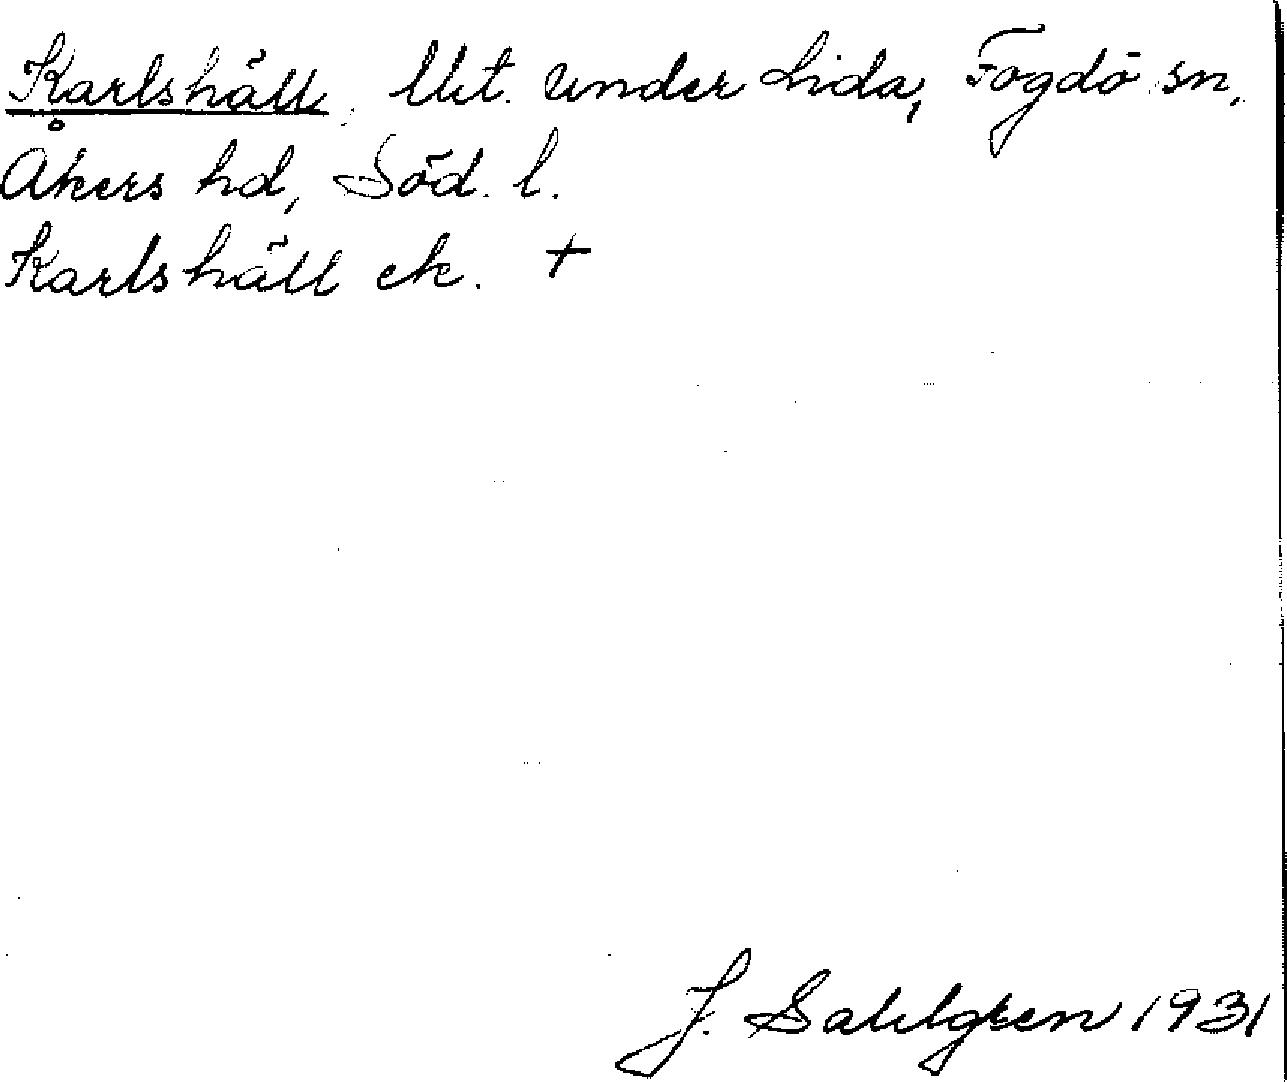 Karlshäll, lht. under Lida, Fogdö sn,
Åkers hd, Söd. l.
Karlshäll ek. +
J. Sahlgren 1931